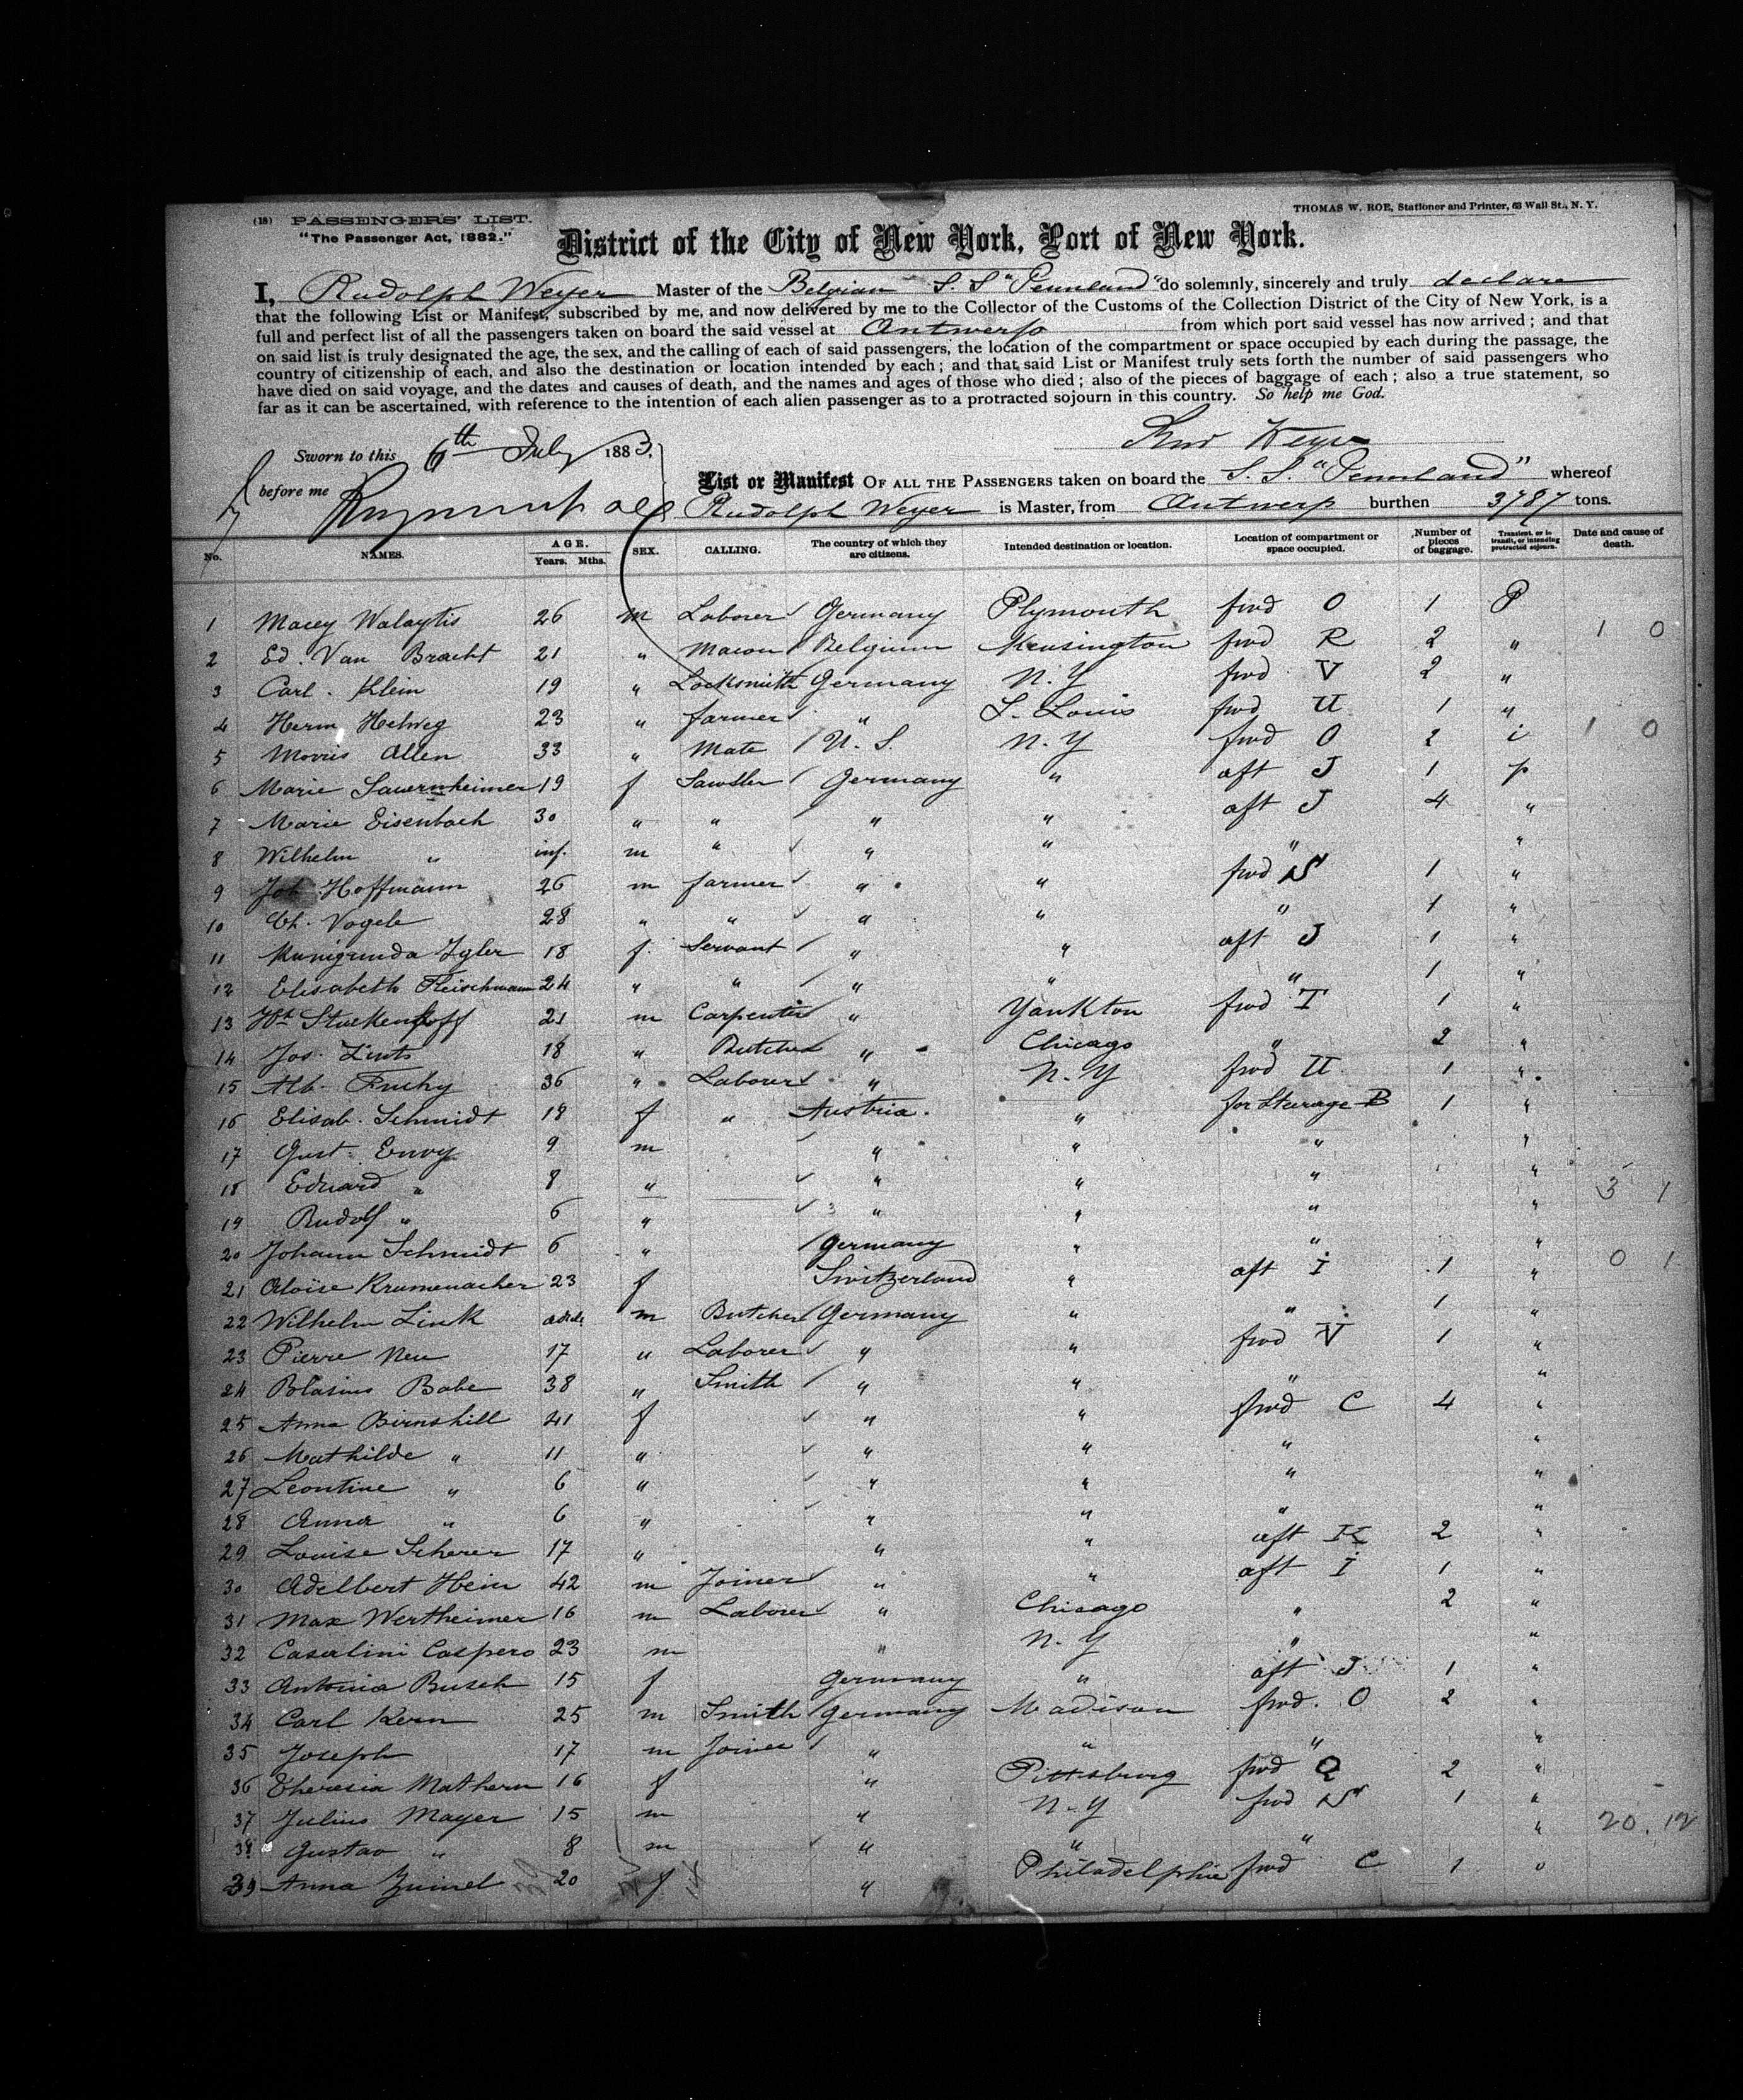 (18) PASSENGERS' LIST.
THOMAS W. ROE, Stationer and Printer, 63 Wall St., N. Y.
"The Passenger Act, 1882."
District of the City of New York, Port of New York.
I, Rudolph Weyer Master of the Belgian S. S "Pennland" do solemnly, sincerely and truly declare
that the following List or Manifest, subscribed by me, and now delivered by me to the Collector of the Customs of the Collection District of the City of New York, is a
full and perfect list of all the passengers taken on board the said vessel at Antwerp from which port said vessel has now arrived; and that
on said list is truly designated the age, the sex, and the calling of each of said passengers, the location of the compartment or space occupied by each during the passage, the
country of citizenship of each, and also the destination or location intended by each; and that said List or Manifest truly sets forth the number of said passengers who
have died on said voyage, and the dates and causes of death, and the names and ages of those who died; also of the pieces of baggage of each; also a true statement, so
far as it can be ascertained, with reference to the intention of each alien passenger as to a protracted sojourn in this country. So help me God.
Sworn to this 6th July 1883,
before me
List or Manifest OF ALL THE PASSENGERS taken on board the S. S. "Pennland" whereof
Rudolph Weyer is Master, from Antwerp burthen 3787 tons.
No. NAMES. AGE. Years. Mths. SEX. CALLING. The country of which they are citizens. Intended destination or location. Location of compartment or space occupied. Number of pieces of baggage. Transient, or in transit, or intending protracted sojourn. Date and cause of death.
1 Macey Walaytis 26 m Laborer Germany Plymouth fwd O 1 P
2 Ed. Van Bracht 21 " Mason Belgium Kensington fwd R 2 " 1 0
3 Carl. Klein 19 " Locksmith Germany N. Y fwd V 2 "
4 Herm Helweg 23 " farmer " S. Louis fwd U 1 "
5 Morris Allen 33 " Mate U. S. N. Y fwd O 2 i 1 0
6 Marie Sauernheimer 19 f Germany " aft J 1 p
7 Marie Eisenbach 30 " " " " aft J 4 "
8 Wilhelm " inf. m " " " " "
9 Joh Hoffmann 26 m farmer " " fwd S 1 "
10 Ch. Vogele 28 " " " " " 1 "
11 Kunigunda Zyler 18 f. Servant " " aft J 1 "
12 Elisabeth Fleischmann 24 " " " " " 1 "
13 Stuckenhoff 21 m Carpenter " Yankton fwd T 1 "
14 Jos. Lints 18 " Butcher " Chicago " 2 "
15 Alb. 36 " Laborer " N. Y fwd U 1 "
16 Elisab. Schmidt 18 f " Austria. " for Sturage B 1 "
17 Gust. Envy 9 m " " " "
18 Eduard " 8 " " " " " 3 1
19 Rudolf " 6 " " " " "
20 Johann Schmidt 6 " Germany " " " 0 1
21 Aloïse Krumenacher 23 f Switzerland " aft I 1 "
22 Wilhelm Link m Butcher Germany " " 1 "
23 Pierre Neu 17 " Laborer " " fwd V 1 "
24 Blasius Babe 38 " Smith " " " "
25 Anna Birnshill 41 f " " fwd C 4 "
26 Mathilde " 11 " " " " "
27 Leontine " 6 " " " " "
28 Anna " 6 " " " " "
29 Louise Scherer 17 " " " aft K 2 "
30 Adelbert Hein 42 m Joiner " " aft I 1 "
31 Max Wertheimer 16 m Laborer " Chicago " 2 "
32 Casalini Caspero 23 m " N. Y " "
33 Antonia Busch 15 f Germany " aft J 1 "
34 Carl Kern 25 m Smith Germany Madison fwd. O 2 "
35 Joseph 17 m Joiner " " " "
36 Theresia Mathern 16 f " Pittsburg fwd Q 2 "
37 Julius Mayer 15 m " N. Y fwd S 1 "
38 Gustav " 8 m " " " " 20. 12
39 Anna Zuinel 20 f " Philadelphia fwd C 1 "